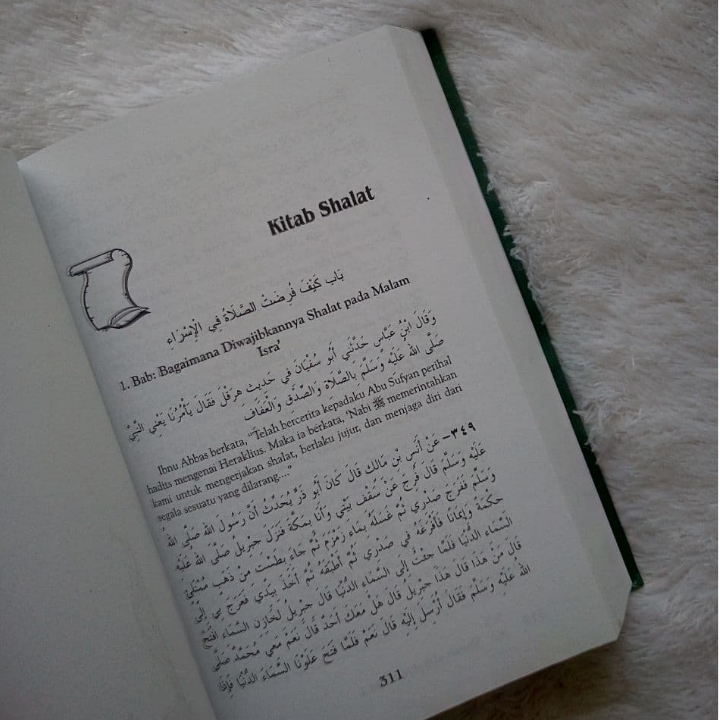 Kitab Shalat
بَاب كَيْفَ فُرِضَتْ الصَّلَاةُ فِي الْإِسْرَاءِ
1. Bab: Bagaimana Diwajibkannya Shalat pada Malam
Isra'
وَقَالَ ابْنُ عَبَّاسٍ حَدَّثَنِي أَبُو سُفْيَانَ فِي حَدِيثِ هِرَقْلَ فَقَالَ يَأْمُرُنَا يَعْنِي النَّبِيَّ
صَلَّى اللهُ عَلَيْهِ وَسَلَّمَ بِالصَّلَاةِ وَالصِّدْقِ وَالْعَفَافِ
Ibnu Abbas berkata, "Telah bercerita kepadaku Abu Sufyan perihal
hadits mengenai Heraklius. Maka ia berkata, 'Nabi ﷺ memerintahkan
kami untuk mengerjakan shalat, berlaku jujur, dan menjaga diri dari
segala sesuatu yang dilarang...."
٣٤٩- عَنْ أَنَسِ بْنِ مَالِكٍ قَالَ كَانَ أَبُو ذَرٍّ يُحَدِّثُ أَنَّ رَسُولَ اللهِ صَلَّى اللهُ
عَلَيْهِ وَسَلَّمَ قَالَ فُرِجَ عَنْ سَقْفِ بَيْتِي وَأَنَا بِمَكَّةَ فَنَزَلَ جِبْرِيلُ صَلَّى اللهُ عَلَيْهِ
وَسَلَّمَ فَفَرَجَ صَدْرِي ثُمَّ غَسَلَهُ بِمَاءِ زَمْزَمَ ثُمَّ جَاءَ بِطَسْتٍ مِنْ ذَهَبٍ مُمْتَلِئٍ
حِكْمَةً وَإِيمَانًا فَأَفْرَغَهُ فِي صَدْرِي ثُمَّ أَطْبَقَهُ ثُمَّ أَخَذَ بِيَدِي فَعَرَجَ بِي إِلَى
السَّمَاءِ الدُّنْيَا فَلَمَّا جِئْتُ إِلَى السَّمَاءِ الدُّنْيَا قَالَ جِبْرِيلُ لِخَازِنِ السَّمَاءِ افْتَحْ
قَالَ مَنْ هَذَا قَالَ هَذَا جِبْرِيلُ قَالَ هَلْ مَعَكَ أَحَدٌ قَالَ نَعَمْ مَعِي مُحَمَّدٌ صَلَّى
اللهُ عَلَيْهِ وَسَلَّمَ فَقَالَ أُرْسِلَ إِلَيْهِ قَالَ نَعَمْ فَلَمَّا فَتَحَ عَلَوْنَا السَّمَاءَ الدُّنْيَا فَإِذَا
311